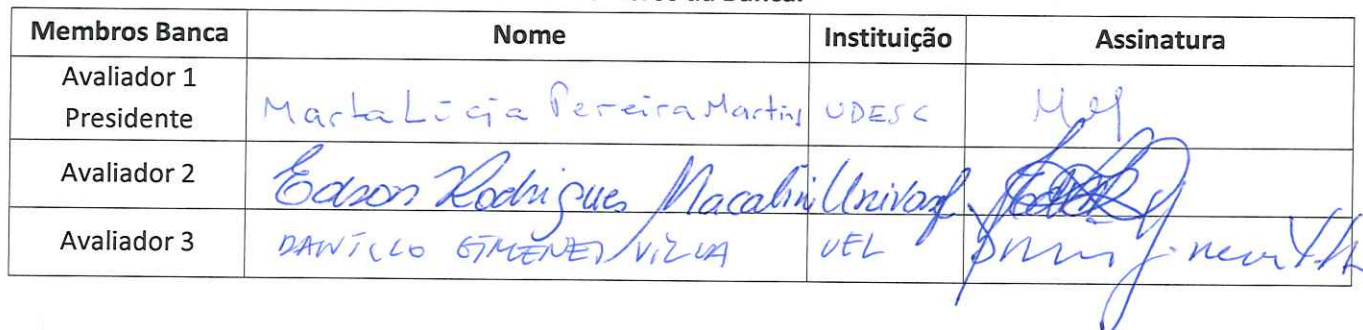 da Banca:
Membros Banca Nome Instituição Assinatura
Avaliador 1
Presidente Marta Lúcia Pereira Martins UDESC
Avaliador 2 Edson Rodrigues Macalini Univasf
Avaliador 3 DANILLO GIMENES VILLA UEL